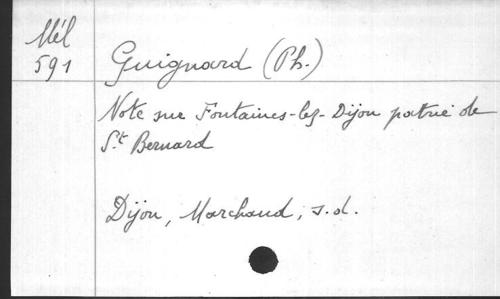 Mél
591
Guignard (Ph.)
Note sur Fontaines-lez-Dijon patrie de
St Bernard
Dijon, Marchand, s.d.